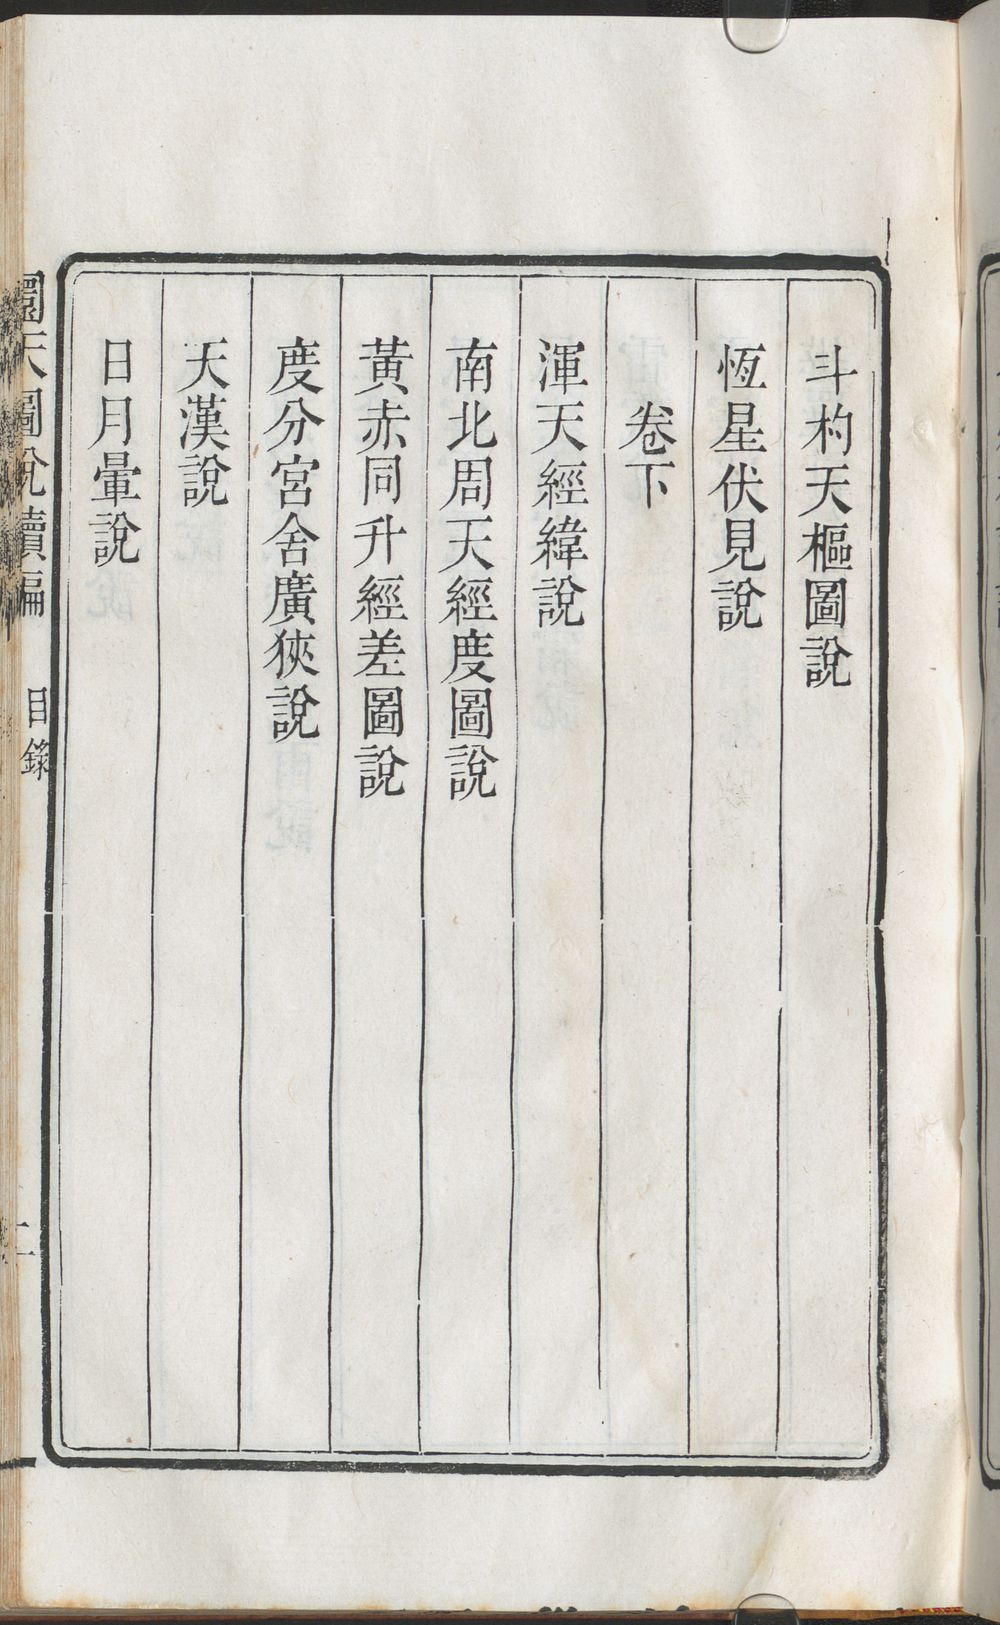 斗杓天樞圖說
恆星伏見說
卷下
渾天經緯說
南北周天經度圖說
黃赤同升經差圖說
度分宮舍廣狹說
天漢說
日月暈說
圜天圖說續編 目錄 二